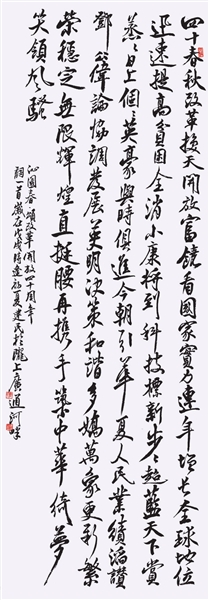 四十春秋改革接天开放富镜看國家實力連年增長全球地位
迅速提高貧困全消小康將到科技標新步步超藍天下賞
蒸蒸日上個個英豪 與時俱進今朝引華夏人民業績滔讚
鄧公偉論協調發展英明決策和諧多嬌萬象更新繁
榮穩定無限輝煌直挺腰再携手築中華倚夢
笑領風騷
沁園春 頌改革開放四十周年
詞一首歲在戊戌時逢初夏建民於隴上廣通河畔